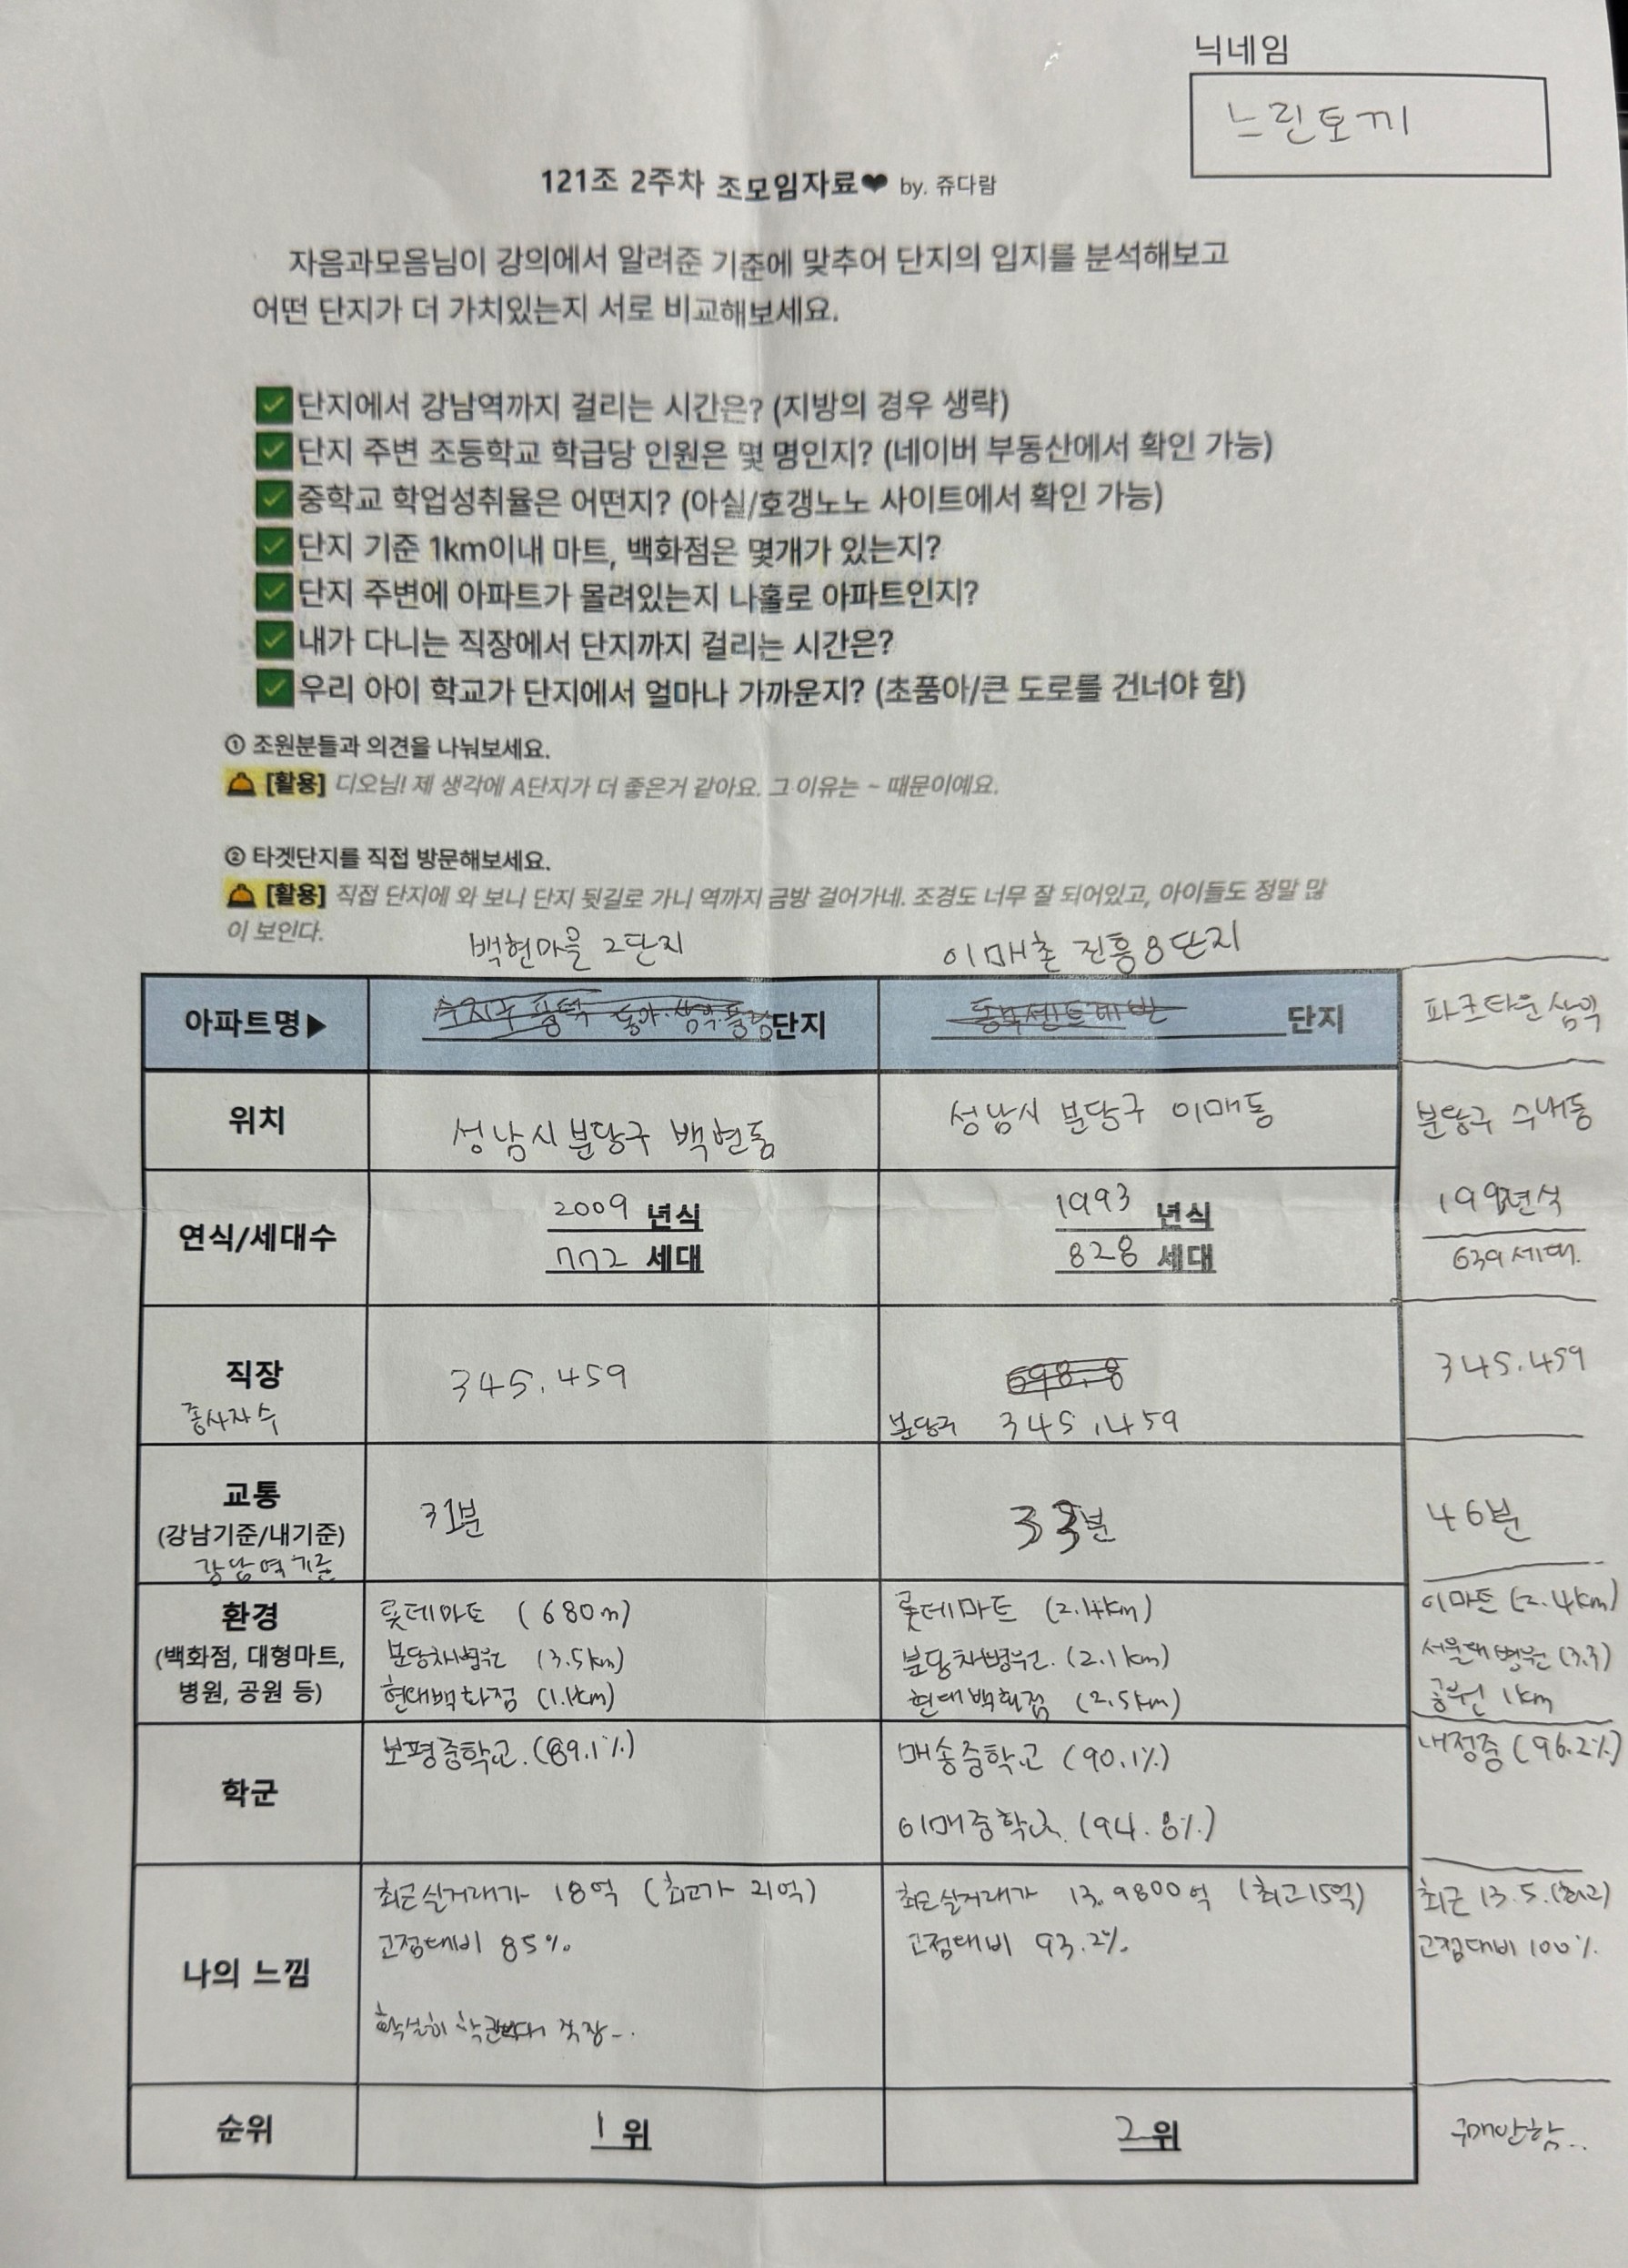 닉네임
느린토끼
121조 2주차 조모임자료❤ by. 쥬다람
자음과모음님이 강의에서 알려준 기준에 맞추어 단지의 입지를 분석해보고
어떤 단지가 더 가치있는지 서로 비교해보세요.
✓ 단지에서 강남역까지 걸리는 시간은? (지방의 경우 생략)
✓ 단지 주변 초등학교 학급당 인원은 몇 명인지? (네이버 부동산에서 확인 가능)
✓ 중학교 학업성취율은 어떤지? (아실/호갱노노 사이트에서 확인 가능)
✓ 단지 기준 1km이내 마트, 백화점은 몇개가 있는지?
✓ 단지 주변에 아파트가 몰려있는지 나홀로 아파트인지?
✓ 내가 다니는 직장에서 단지까지 걸리는 시간은?
✓ 우리 아이 학교가 단지에서 얼마나 가까운지? (초품아/큰 도로를 건너야 함)
① 조원분들과 의견을 나눠보세요.
[활용] 디오님! 제 생각에 A단지가 더 좋은거 같아요. 그 이유는 ~ 때문이예요.
② 타겟단지를 직접 방문해보세요.
[활용] 직접 단지에 와 보니 단지 뒷길로 가니 역까지 금방 걸어가네. 조경도 너무 잘 되어있고, 아이들도 정말 많
이 보인다.
백현마을 2단지 이매촌 진흥 8단지
아파트명▶ 단지 단지 파크타운 삼익
위치 성남시 분당구 백현동 성남시 분당구 이매동 분당구 수내동
연식/세대수
2009 년식 1993 년식 년식
772 세대 828 세대 639세대.
직장 345.459 345.459
종사자수 분당구 345,459
교통
(강남기준/내기준)
강남역기준
31분 33분 46분
환경
(백화점, 대형마트,
병원, 공원 등)
롯데마트 (680m) 롯데마트 (2.4km) 이마트 (2.4km)
분당차병원 (3.5km) 분당차병원. (2.1km) 서울대병원 (3.3)
현대백화점 (1.1km) 현대백화점 (2.5km) 공원 1km
학군
보평중학교. (89.1%) 매송중학교 (90.1%) 내정중 (96.2%)
이매중학교. (94.8%)
나의 느낌
최근실거래가 18억 (최고가 21억) 최근실거래가 13.9800억 (최고15억) 최근 13.5.(최고)
고점대비 85%. 고점대비 93.2%. 고점대비 100%.
확실히 직장...
순위 1 위 2 위 구매안함..